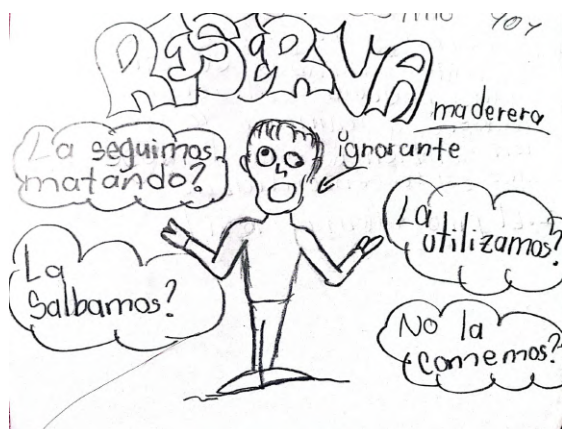 RESERVA
maderera
La seguimos
matando?
ignorante
La
Salbamos?
La
utilizamos?
No la
comemos?